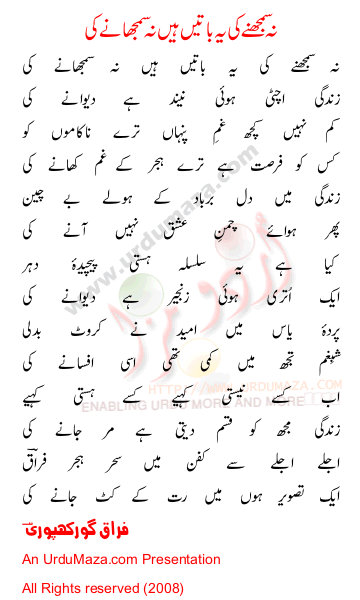 نہ سمجھنے کی یہ باتیں ہیں نہ سمجھانے کی
نہ سمجھنے کی یہ باتیں ہیں نہ سمجھانے کی
زندگی اچٹی ہوئی نیند ہے دیوانے کی
کم نہیں کچھ غمِ پنہاں ترے ناکاموں کو
کس کو فرصت ہے ترے ہجر کے غم کھانے کی
زندگی میں دل برباد کے ہولے بے چین
پھر ہوائے چمنِ عشق نہیں آنے کی
کیا ہے یہ سلسلہ ہستی پیچیدۂ دہر
ایک اُتری ہوئی زنجیر ہے دیوانے کی
پردۂ یاس میں امید نے کروٹ بدلی
شبِغم تجھ میں کمی تھی اسی افسانے کی
اب کسے نیستی کہیے کسے ہستی کہیے
زندگی مجھ کو قسم دیتی ہے مر جانے کی
اجلے اجلے سے کفن میں سحر ہجر فراقؔ
ایک تصویر ہوں میں رت کے کٹ جانے کی
فراق گورکھپوری
An UrduMaza.com Presentation
All Rights reserved (2008)
www.urdumaza.com
اُردو مزا
HTTP://WWW.URDUMAZA.COM
ENABLING URDU MORE AND MORE